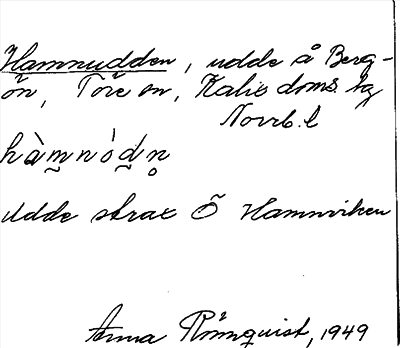 Hamnudden, udde å Berg-
ön, Töre sn, Kalix doms. hg
Norrb. l
hàmnòdn̥
Udde strax Ö Hamnviken
Anna Rönnquist, 1949